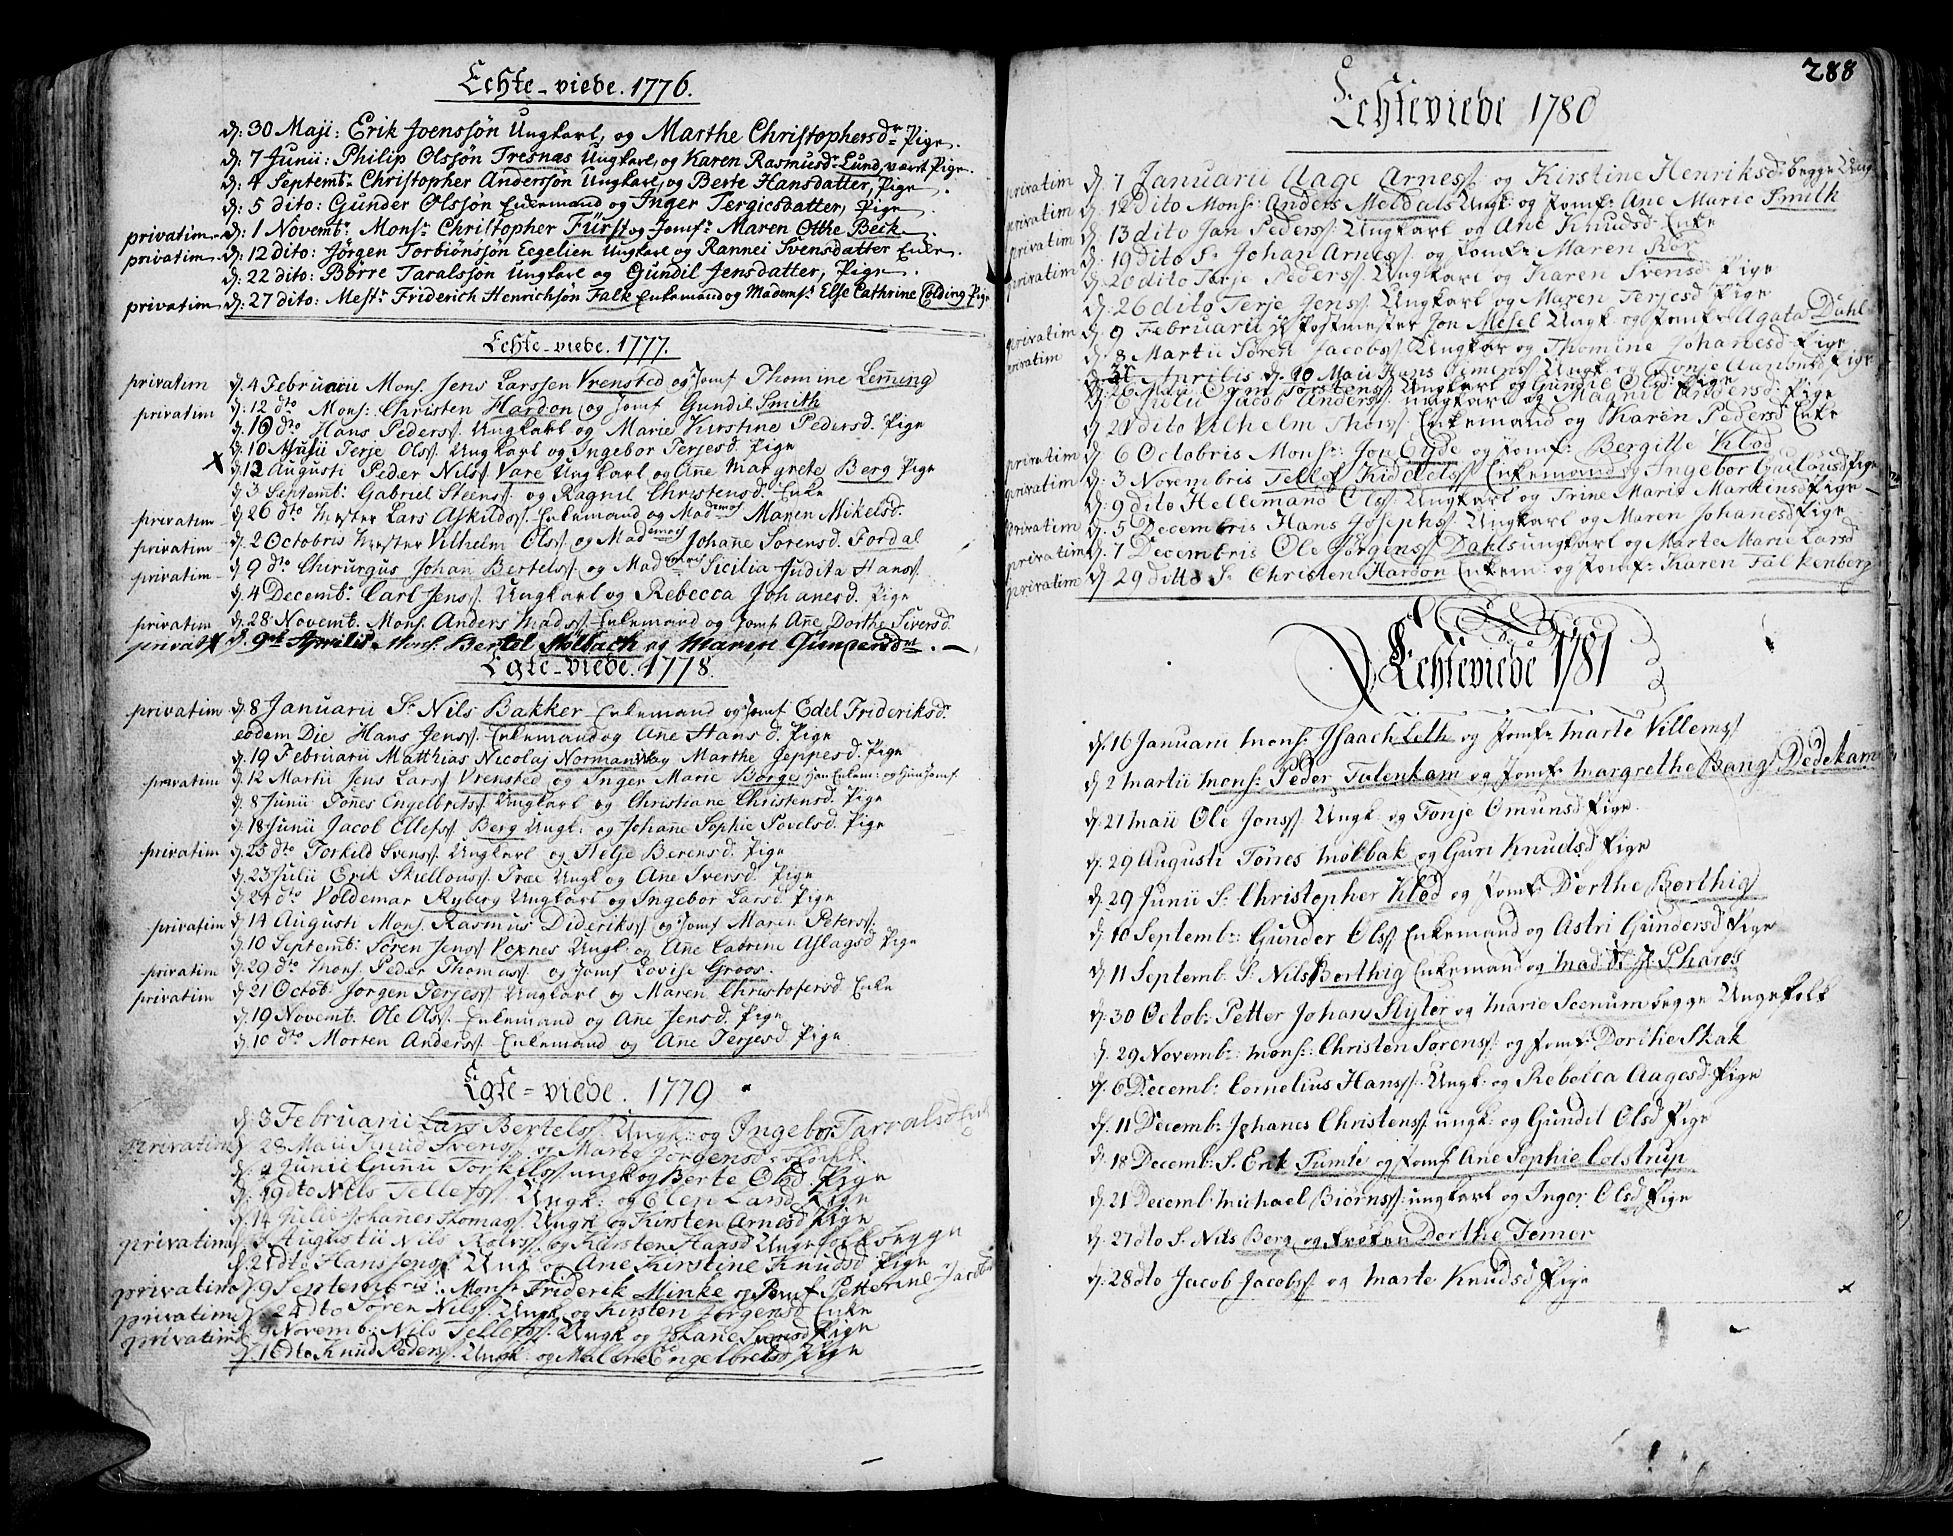 Echte-viede. 1776.
d: 30 Maji: Erik Joenssøn Ungkarl, og Marthe Christophersdr Pige.
d: 7 Junii: Philip Olssøn Tresnæs Ungkarl, og Karen Rasmusdr Lund, Pige.
d: 4 Septembr Christopher Anderssøn Ungkarl, og Berte Hansdatter, Pige.
d: 5 dito: Gunder Olssøn Enkemand og Inger Tergiesdatter, Pige.
privatim d: 1 Novembr Monsr Christopher Fürst og Jomfr Maren Otthe Beck.
privatim d: 12 dito: Jørgen Torbiönssøn Eegelien Ungkarl og Rannei Svensdatter Enke.
d: 22 dito: Børre Taralssøn Ungkarl og Gundil Jensdatter, Pige.
privatim d: 27 dito: Mestr Friderich Henrichsøn Falk Enkemand og Mademss Else Cathrine Colding Pige
Echte-viede. 1777.
privatim d. 4 Februarii Mons. Jens Larssen Vrensted og Jomf Thomine Lemming
privatim d. 12 dto Mons: Christen Hardon og Jomf Gundil Smith
d. 16 dto Hans Peders. Ungkarl og Marie Kirstine Pedersd. Pige
d. 10 Terje Ols. Ungkarl og Ingebor Terjesd. Pige
X d. 12 Augusti Peder Nils. Vare Ungkarl og Ane Margrete Berg Pige
d. 3 Septemb: Gabriel Steens. og Ragnil Christensd. Enke
privatim d. 26 dto Mester Lars Askilds. Enkemand og Mademois Maren Mikelsd.
privatim d. 2 Octobris Mester Vilhelm Ols. og Mademois Johane Sorensd. Fordal
privatim d. 9 dto Chirurgus Johan Bertels. og Mademois Sicilia Judita Hans.
d. 4 Decembr Carl Jens. Ungkarl og Rebecca Johanesd. Pige
privatim d. 28 Novemb. Mons. Anders Mads. Enkemand og Jomf Ane Dorthe Siversd.
privat d. 9de Aprilis Mons. Bertel Molbach og Maren Gundersdtr.
Egte-viede. 1778.
privatim d. 8 Januarii Sr Nils Bakker Enkemand og Jomf Edel Frideriksd.
eodem Die Hans Jens. Enkemand og Ane Hansd. Pige
d. 19 Februarii Matthias Nicolaj Normand og Marthe Jeppesd. Pige
privatim d. 12 Martii Jens Lars. Vrensted og Inger Marie Borge han Enkem: og hun Jomf.
d. 8 Junii Tönes Engelbrets. Ungkarl og Christiane Christensd. Pige
d. 18 Junii Jacob Ellefs. Berg Ungk: og Johane Sophie Povelsd. Pige
privatim d. 23 dto Torkild Svens. Ungkarl og Helje Berensd. Pige
d. 23 Julii Erik Skiellous. Træe Ungk og Ane Iversd. Pige
d. 24 dto Voldemar Ryberg Ungkarl og Ingebor Larsd. Pige
privatim d. 14 Augusti Mons. Rasmus Dideriks. og Jomf Maren Peters.
d. 10 Septemb: Soren Jens. Voxnes Ungk: og Ane Catrine Aslagsd Pige
privatim d. 29 dto Mons. Peder Thomas. og Jomf Lovise Groos.
privatim d. 21 Octob: Jorgen Terjes. Ungkarl og Maren Christofersd Enke
d. 19 Novemb. Ole Ols. Enkemand og Ane Jensd. Pige
d. 10 dto Morten Anders. Enkemand og Ane Terjesd. Pige
Egte-viede. 1779
d. 3 Februarii Lars Bertels. Ungk: og Ingebor Tarralsd
privatim d. 28 Maii Knud Svens. og Marte Jorgensd.
d. 2 Junii Torkels. ungk og Berte Olsd Pige
d. 19 dto Nils Tellefs. Ungk: og Elen Larsd Pige
d. 14 Julii Johanes Thomas. Ungk og Kirsten Arnesd Pige
privatim d. 3 Augustii Nils og Kirsten Hansd Ungefolk begge
d. 21 dto Hans Jens. Ung og Ane Kirstine Knudsd Pige
privatim d. 9 Septembris Monsr Friderik Minke og Jomf Petterine Jacobsd
privatim d. 24 dto Soren Nils. Ungk og Kirsten Jorgensd Enke
privatim d. 9 Novemb: Nils Tellefs. Ungk og Johane Pige
d. 16 dto Knud Peders. Ungk. og Malene Engelbretsd Pige
288
Echteviede 1780
privatim d. 7 Januarii Aage Arnes. og Kirstine Henriksd. begge Unge
privatim d. 12 dito Mons: Anders Meldals Ungk: og Jomfr Ane Marie Smith
privatim d. 13 dito Jan Peders. Ungkarl og Ane Knudsd Enke
privatim d. 19 dito Sr Johan Arnes. og Jomfr Maren Rör
d. 20 dito Terje Peders. Ungkarl og Karen Svensd Pige
d. 26 dito Terje Jens. Ungkarl og Maren Terjesd Pige
privatim d. 9 Februarii Postmester Jon Mesel Ungk. og Jomfr Agata Dahl
privatim d. 8 Martii Soren Jacobs. Ungkar og Thomine Johanesd Pige
d. Aprilis d. 10 Maii Hans Ungk og Tonje Pige
d. 26 Maii Torstens. Ungkarl og Gundil Olsd. Pige
d. 6 Julii Jacob Anders. ungkarl og Magnil Andersd Pige
d. 21 dito Vilhelm Thos. Enkemand og Karen Pedersd Enke
privatim d. 6 Octobris Monsr Jon Eyde og Jomfr Bergitte Klod
privatim d. 3 Novembris Tellef Kiddels. Enkemand og Ingebor Pige
d. 9 dito Hellemand Ols. Ungkarl og Trine Marie Martinsd Pige
privatim d. 5 Decembris Hans Josephs. Ungkarl og Maren Johanesd Pige
privatim d. 7 Decembris Ole Jörgens. Dahls ungkarl og Marte Marie Larsd
privatim d. 29 ditto Sr Christen Hardon Enkem: og Jomfr Karen Falkenberg
Echteviede 1781
d. 16 Januarii Mons: Isaach Leth og Jomfr Marte Villems.
d. 2 Martii Mons: Peder Tulenkam og Jomfr Margrethe Bang Dedekam
d. 21 Maii Ole Jons. Ungk: og Tonje Omunsd Pige.
d. 29 Augusti Törres Molbak og Guri Knudsd Pige
d. 29 Junii S. Christopher Klod og Jomfr Dorthe Borthig
d. 10 Septembr: Gunder Ols. Enkemand og Astri Gundersd Pige
d. 11 Septemb: S. Nils Borthig Enkemand og Mad Pharos
d. 30 Octob: Petter Johan Slyter og Marie Scenum begge Ungefolk
d. 29 Novembr: Mons: Christen Sorens. og Jomfr Dorthe Skak
d. 6 Decemb: Cornelius Hans. Ungk: og Rebecca Aagesd Pige
d. 11 Decemb: Johanes Christens. ungk: og Gundil Olsd Pige
d. 18 Decemb: S. Erik Tumte og Jomf: Ane Sophie Colstrup
d. 21 Decemb: Michael Biörns. ungkarl og Inger Olsd Pige
d. 27 dto S. Nils Berg og Fröken Dorthe Temer
d. 28 dto Jacob Jacobs. og Marte Knudsd Pige